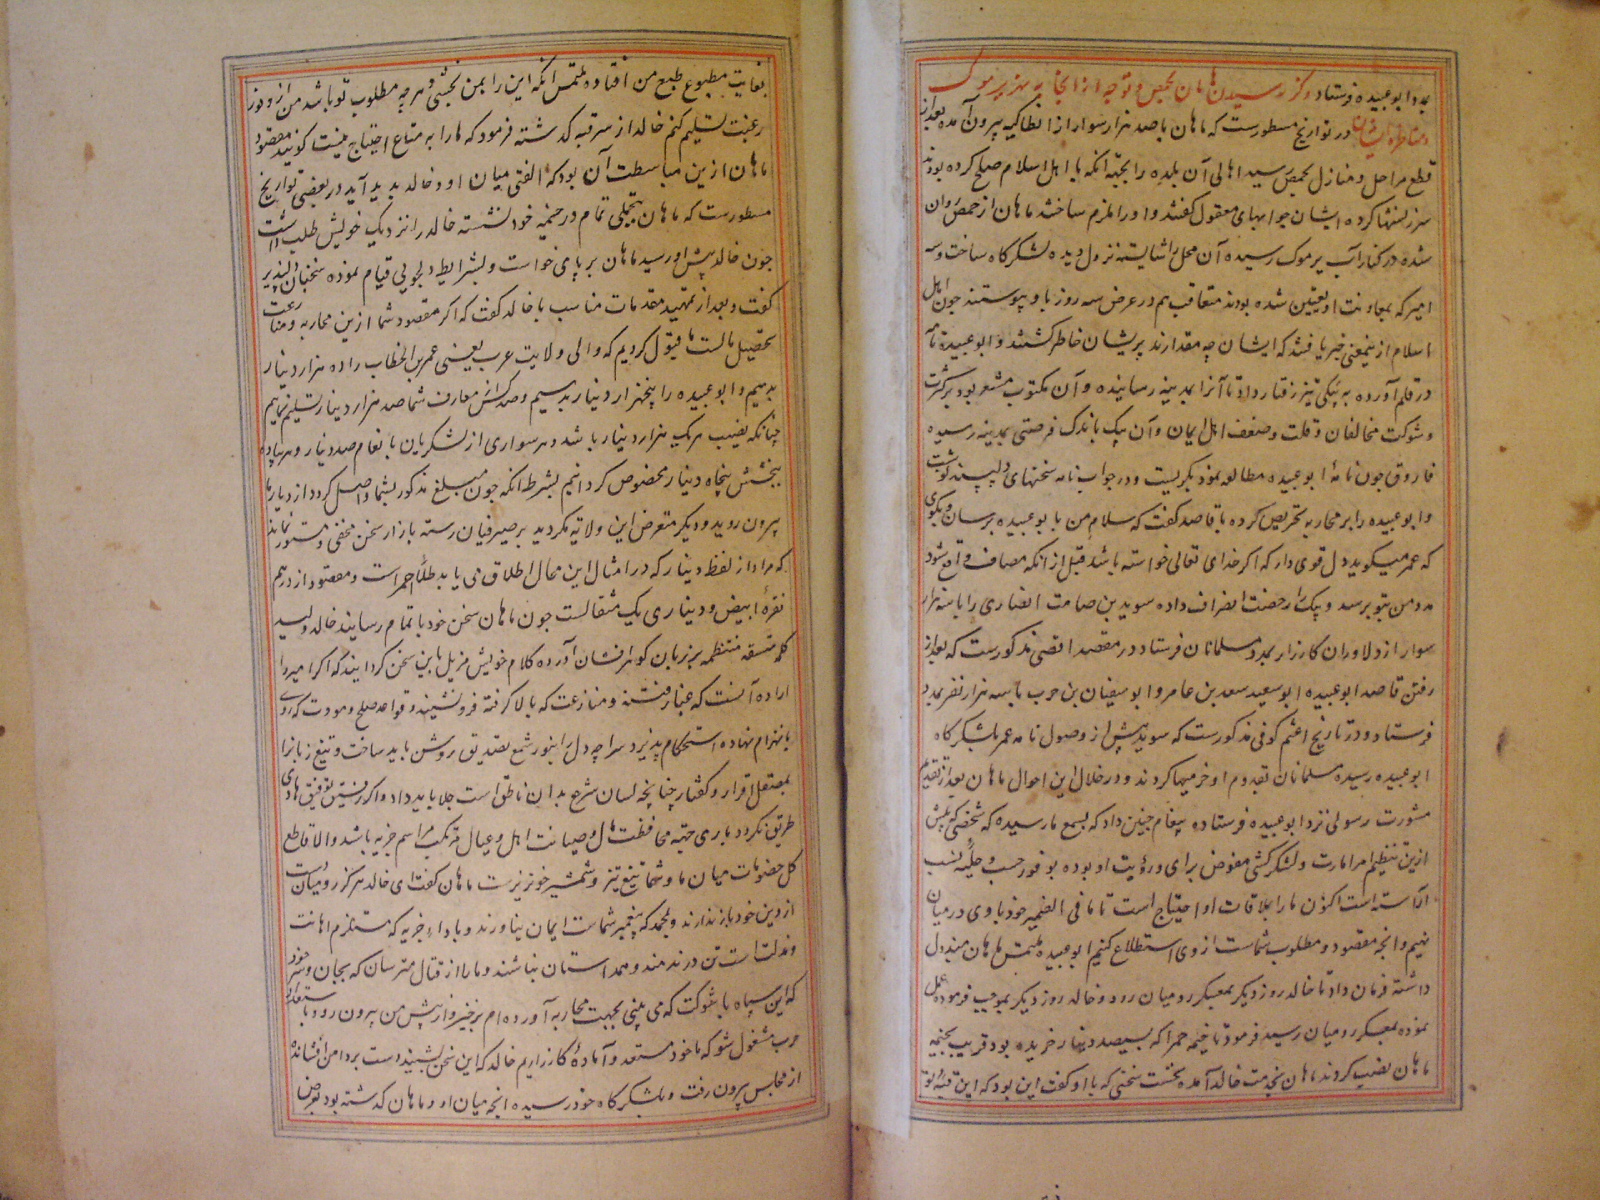 بمدد ابو عبیده فرستاد و ذکر رسیدن ماهان بحمص و توجه از انجا به نهر یرموک
در تواریخ مسطورست که ماهان با صد هزار سوار از انطاکیه بیرون آمده بعد از
قطع مراحل و منازل بحمص رسید اهالی آن بلده را بجهة انکه با اهل اسلام صلح کرده بودند
سرزنشها کرده ایشان جوابهای معقول گفتند و او را ملزم ساختند ماهان از حمص روان
شده در کنار آب یرموک رسیده آن محل را شایسته نزول دیده لشکرکاه ساخت و سه
امیر که بمعاونت او تعیین شده بودند متعاقب هم در عرض سه روز باو پیوستند جون اهل
اسلام از ینمعنی خبر یافتند که ایشان چه مقدارند پریشان خاطر کشتند و ابو عبیده نامه
در قلم آورده به پیکی تیز رفتار داد تا آنرا بمدینه رسانیده و آن مکتوب مشعر بود بر کثرت
و شوکت مخالفان و قلت و ضعف اهل ایمان و آن پیک باندک فرصتی بمدینه رسیده
فاروق جون نامهٔ ابو عبیده مطالعه نمود بکریست و در جواب نامه سخنهای دلپسند نوشت
و ابو عبیده را بر محاربه تحریص کرده با قاصد کفت که سلام من با بو عبیده برسان و بکوی
که عمر میکوید دل قوی دار که اکر خدای تعالی خواسته باشد قبل از انکه مصاف واقع شود
مدد من بتو برسد و پیک را رخصت انصراف داده سوید بن صامت انصاری را با سه هزار
سوار از دلاوران کارزار بمدد مسلمانان فرستاد در مقصد اقصی مذکورست که بعد از
رفتن قاصد ابو عبیده ابو سعید سعد بن عامر و ابو سفیان بن حرب با سه هزار نفر بمدد
فرستاد و در تاریخ اعثم کوفی مذکورست که سوید پیش از وصول نامه عمر بلشکر کاه
ابو عبیده رسیده مسلمانان بقدوم او خرمیها کردند و در خلال این احوال ماهان بعد از تقدیم
مشورت رسولی نزد ابو عبیده فرستاده پیغام چنین داد که بسمع ما رسیده که شخصی که پیش
ازین تنظیم امر امارت و لشکر کشی مفوض برای و رؤیت او بوده بوفور حسب و حلیهٔ نسب
آراسته است اکنون ما را بملاقات او احتیاج است تا ما فی الضمیر خود با وی در میان
نهیم و انچه مقصود و مطلوب شماست از وی استطلاع کنیم ابو عبیده ملتمس ماهان مبذول
داشته فرمان داد تا خالد روز دیکر بمعسکر رومیان رود و خالد روز دیکر بموجب فرموده عمل
نموده بمعسکر رومیان رسید فرمود تا خیمه حمرا که بسیصد دینار خریده بود قریب بخیمه
ماهان نصب کردند ماهان بخدمت خالد آمده نخست سخنی که با او کفت این بود که این قبهٔ تو
بغایت مطبوع طبع من افتاده ملتمس آنکه این را بمن بخشی و هر چه مطلوب تو باشد من از روی
رغبت تسلیم کنم خالد از سر قبه کذشته فرمود که ما را به متاع احتیاج نیست کویند مقصود
ماهان ازین مباسطت آن بود که الفتی میان او و خالد پدید آید در بعضی تواریخ
مسطورست که ماهان بتجملی تمام در خیمه خود نشسته خالد را نزدیک خویش طلب داشت
جون خالد پیش او رسید ماهان بر پای خواست و بشرایط دلجویی قیام نموده سخنان دلپذیر
کفت و بعد از تمهید مقدمات مناسب با خالد کفت که اکر مقصود شما ازین محاربه و منازعت
تحصیل مالست ما قبول کردیم که والی ولایت عرب یعنی عمر بن الخطاب را ده هزار دینار
بدهیم و ابو عبیده را پنجهزار دینار بدهیم و صد کس از معارف شما صد هزار دینار تسلیم نماییم
چنانکه نصیب هر یک هزار دینار باشد و هر سواری از لشکریان با نعام صد دینار و هر پیاده
ببخشش پنجاه دینار مخصوص کردانیم بشرط انکه جون مبلغ مذکور بشما واصل کردد از دیار ما
بیرون روید و دیکر متعرض این ولایة نکردید بر صیرفیان رسته بازار سخن مخفی و مستور نماند
که مراد از لفظ دینار که در امثال این محال اطلاق می یابد طلاء احمر است و مقصود از درهم
نقرهٔ ابیض و دیناری یک مثقالست جون ماهان سخن خود با تمام رسانید خالد ولید
کلمه متسقه منتظمه بر زبان کوهر افشان آورده کلام خویش مزیل باین سخن کردانید که اکر امیر را
اراده آنست که غبار فتنه و منازعت که بالا کرفته فرو نشیند و قواعد صلح و مودت که روی
بانهزام نهاده استحکام پذیرد سراچه دل را بنور شمع تصدیق روشن باید ساخت و تیغ زبانرا
بمصقل اقرار و کفتار چنانچه لسان شرع بدان ناطق است جلا باید داد و اکر رفیق توفیق هادی
طریق نکردد باری جهة محافظت مال و صیانت اهل و عیال مرتکب مراسم جزیه باشد و الا قاطع
کل خصومات میان ما و شما تیغ تیز و شمشیر خونریزست ماهان کفت ای خالد هرکز رومیان دست
از دین خود باز ندارند و بمحمد که پیغمبر شماست ایمان نیاورند و با داء جزیه که مستلزم اهانت
و مذلت است تن درندهند و همداستان نباشند و ما را از قتال مترسان که بجان و سر خود
که این سپاه با شوکت که می بینی بجهت محاربه آورده ام برخیز و از پیش من بیرون رو و با ستعداد
حرب مشغول شو که ما خود مستعد و آمادهٔ کارزاریم خالد که این سخن بشنید دست بر دامن افشانده
از مجلس بیرون رفت و بلشکر کاه خود رسیده انچه میان او و ماهان کذشته بود بعرض